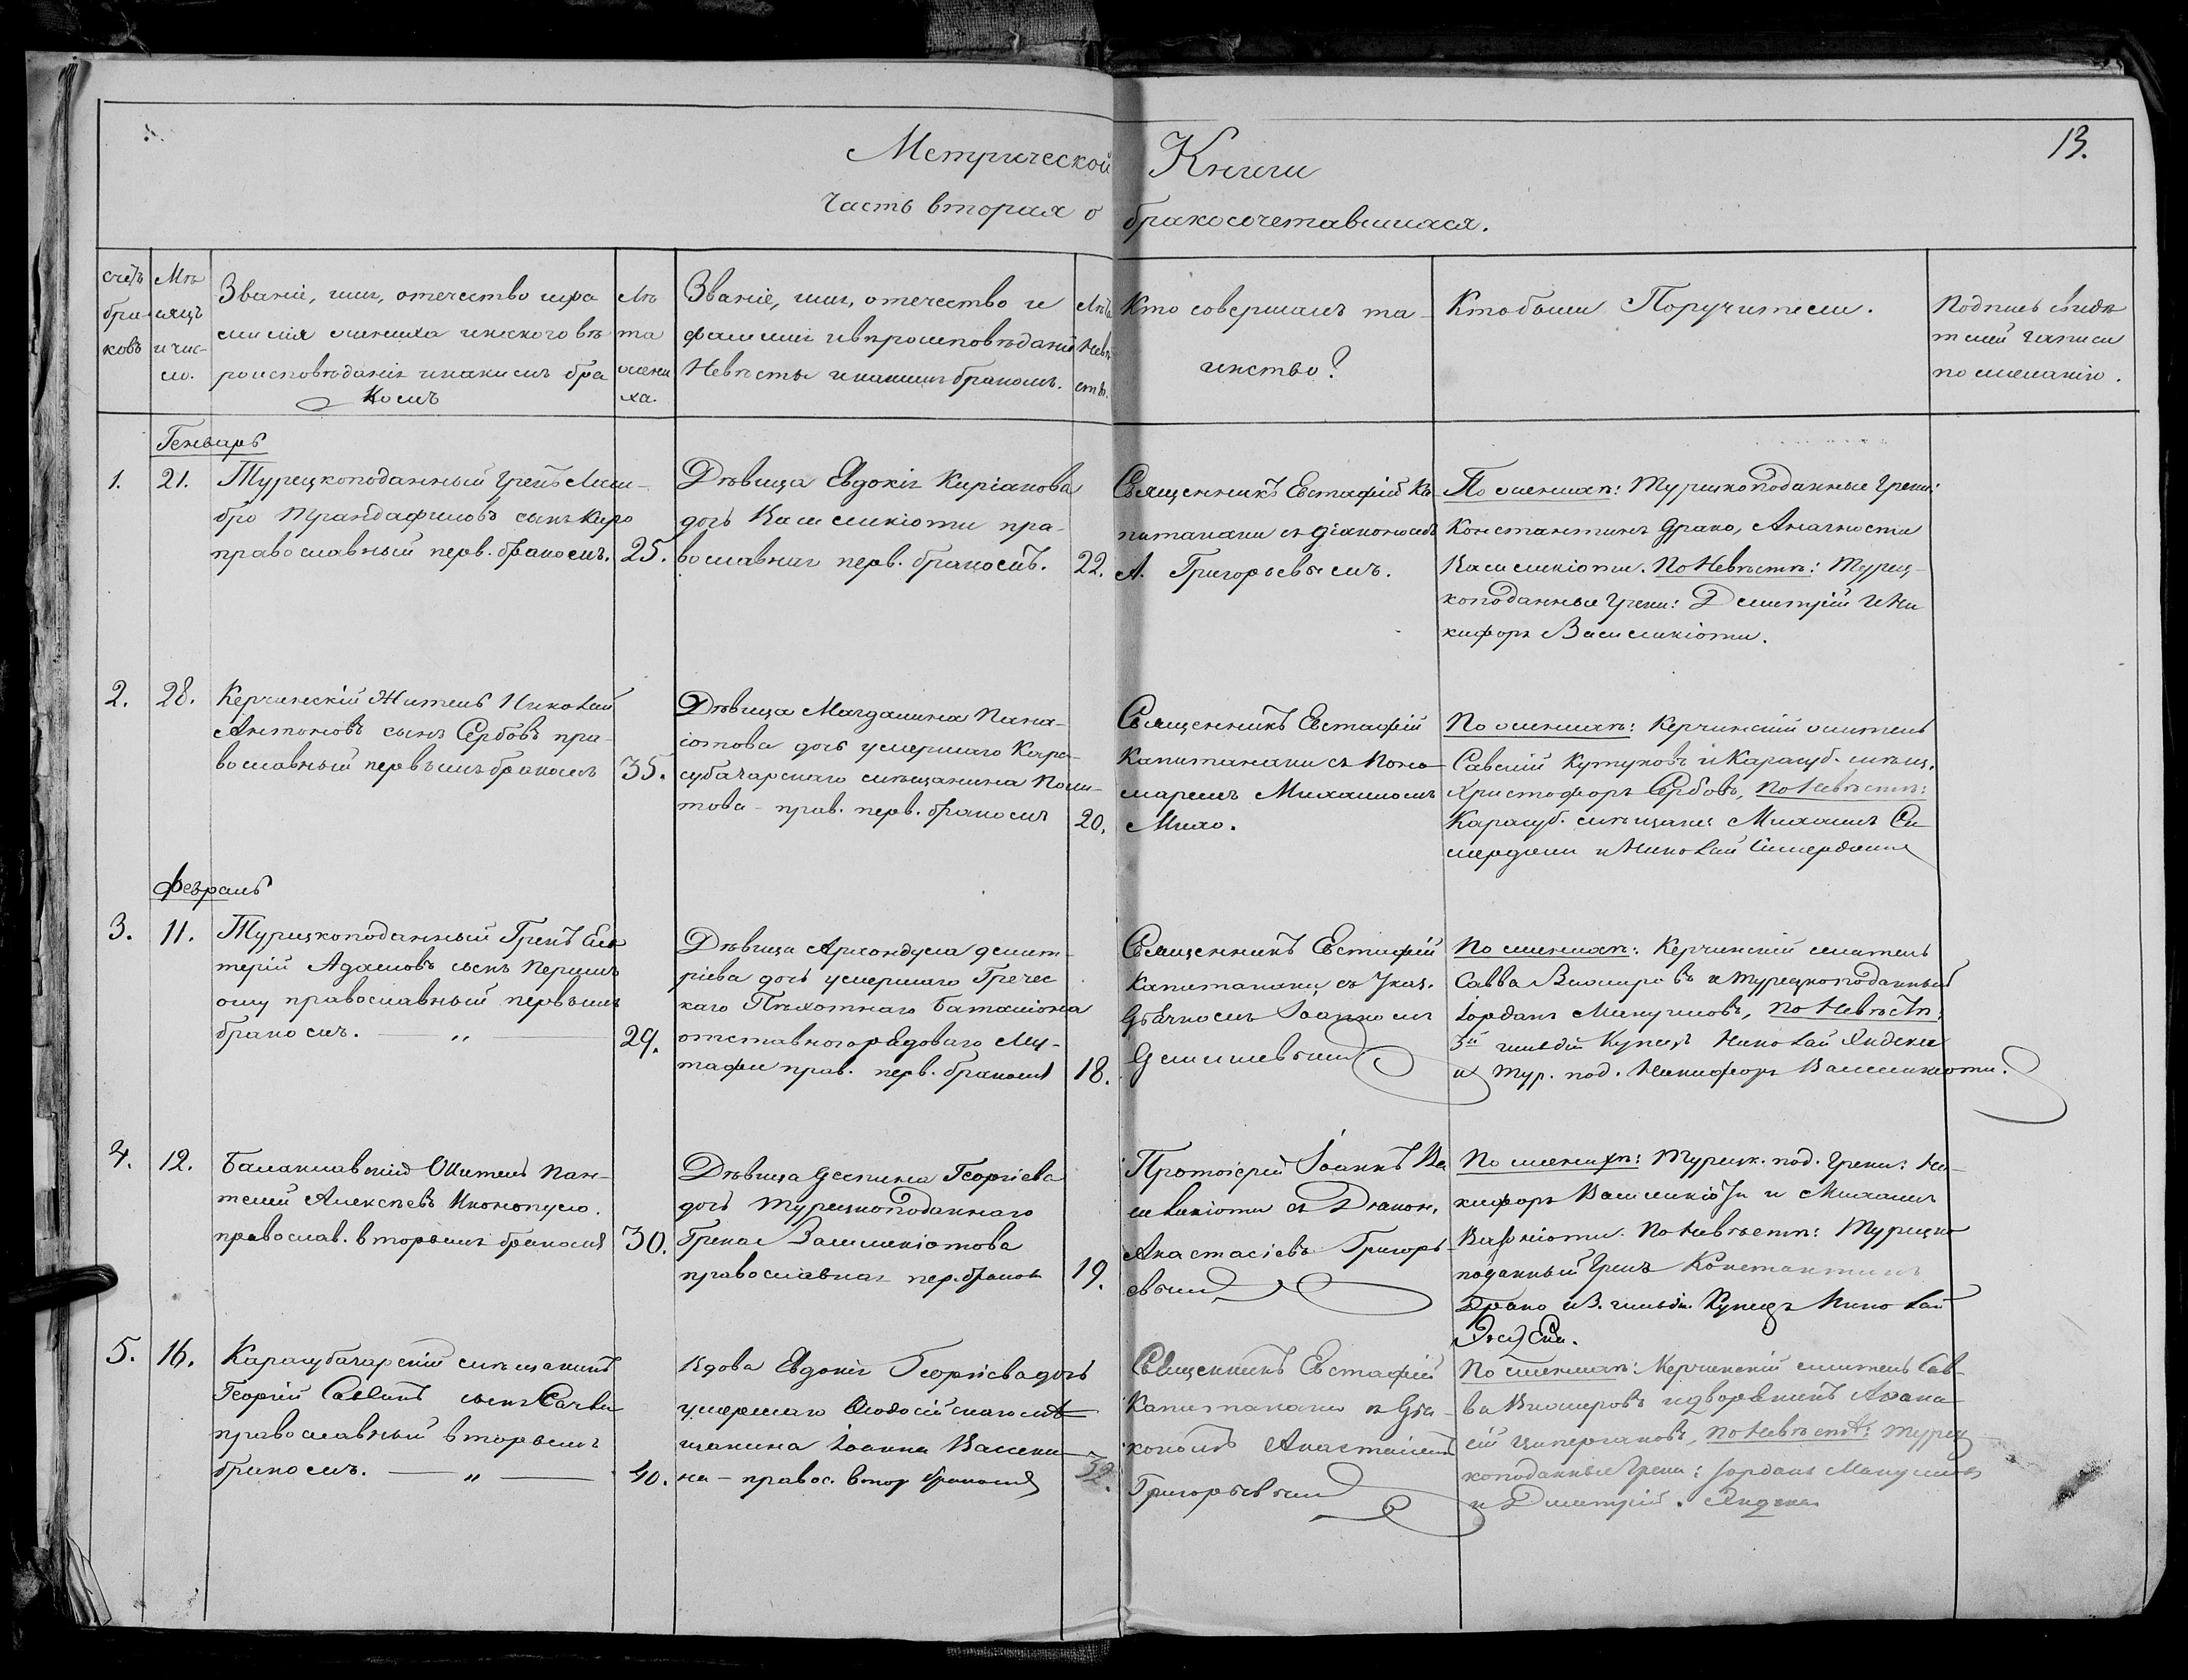 13.
Метрической Книги
Часть вторая о бракосочетавшихся.
счетъ
бра-
ковъ
Мѣ
сяцъ
и чис-
ло.
Званіе, имя, отечество и фа
милія жениха и какого вѣ
роисповѣданія и какимъ бра
комъ
Лѣ
та
жени
ха.
Званіе, имя, отечество и
фамиліи и вѣроисповѣданіи
Невѣсты и какимъ бракомъ.
Лѣта
Невѣ
сты.
Кто совершалъ та-
инство?
Кто были Поручители.
Подпись свидѣ
телей записи
по желанію.
Генварь
1.
21.
Турецкоподанный Грекъ
Трандафиловъ сынъ Киро
православный перв. бракомъ.
25.
Дѣвица Евдокія Киріакова
дочь Василикіоти пра-
вославная перв. бракомъ.
22.
Священникъ Евстафій Ка
питанаки съ діакономъ
А. Григорьевымъ.
По женихѣ: Турецкоподанные Греки:
Константинъ Драко, Анагности
Василикіоти. По Невѣстѣ: Турец-
коподанные Греки: Дмитрій и Ни
кифоръ Василикіоти.
2.
28.
Керчинскій Житель Николай
Антоновъ сынъ Сербовъ пра-
вославный первымъ бракомъ
35.
Дѣвица Магдалина Пана-
іотова дочь умершаго Кара-
субазарскаго мѣщанина
това - прав. перв. бракомъ
20.
Священникъ Евстафій
Капитанаки съ Поно-
маремъ Михаиломъ
Михо.
По женихѣ: Керчинскій житель
Савелій Кутуковъ и Карасуб. мѣщ.
Христофоръ Сербовъ, По Невѣстѣ:
Карасуб. мѣщане Михаилъ Си
мердани и Николай Симердани
Февраль
3.
11.
Турецкоподанный Грекъ Еле
терій Адамовъ сынъ
оглу православный первымъ
бракомъ. — „ —
29.
Дѣвица Архондула Димит-
ріева дочь умершаго Гречес
каго Пѣхотнаго Баталіона
отставного рядоваго Му-
тафи прав. перв. бракомъ
18.
Священникъ Евстафій
Капитанаки съ Указ.
Дьячкомъ Іоанномъ
По женихѣ: Керчинскій житель
Савва Віомировъ и Турецкоподанный
Іорданъ Мануиловъ, По Невѣстѣ:
3й гильдіи Купецъ Николай Янджи
и Тур. под. Никифоръ Василикіоти.
4.
12.
Балаклавскій Житель Пан-
телей Алексѣевъ Икономуло.
православ. вторымъ бракомъ
30.
Дѣвица Деспина Георгіева
дочь Турецкоподаннаго
Грека Василикіотова
православная пер. браком
19.
Протоіерей Іоаннъ Ва
силикіоти съ Діакон.
Анастасіевъ Григорь
евымъ
По женихѣ: Турецк. под. Греки: Ни-
кифоръ Василикіоти и Михаилъ
По Невѣстѣ: Турецко
поданный Грекъ Константинъ
Драко и 3. гильдіи Купецъ Николай
5.
16.
Карасубазарскій мѣщанинъ
Георгій Саввинъ сынъ Сачли
православный вторымъ
бракомъ. — „ —
40.
Вдова Евдокія Георгіева дочь
умершаго Ѳеодосійскаго мѣ
щанина Іоанна
на - правос. втор бракомъ
32.
Священникъ Евстафій
Капитанаки съ Діа-
кономъ Анастасіемъ
Григорьевымъ
По женихѣ: Керчинскій житель Сав-
ва Віомировъ и дворянинъ Аѳана
сій По Невѣстѣ: Турец
коподанные Греки: Іорданъ Мануиловъ
и Дмитрій. Янджи